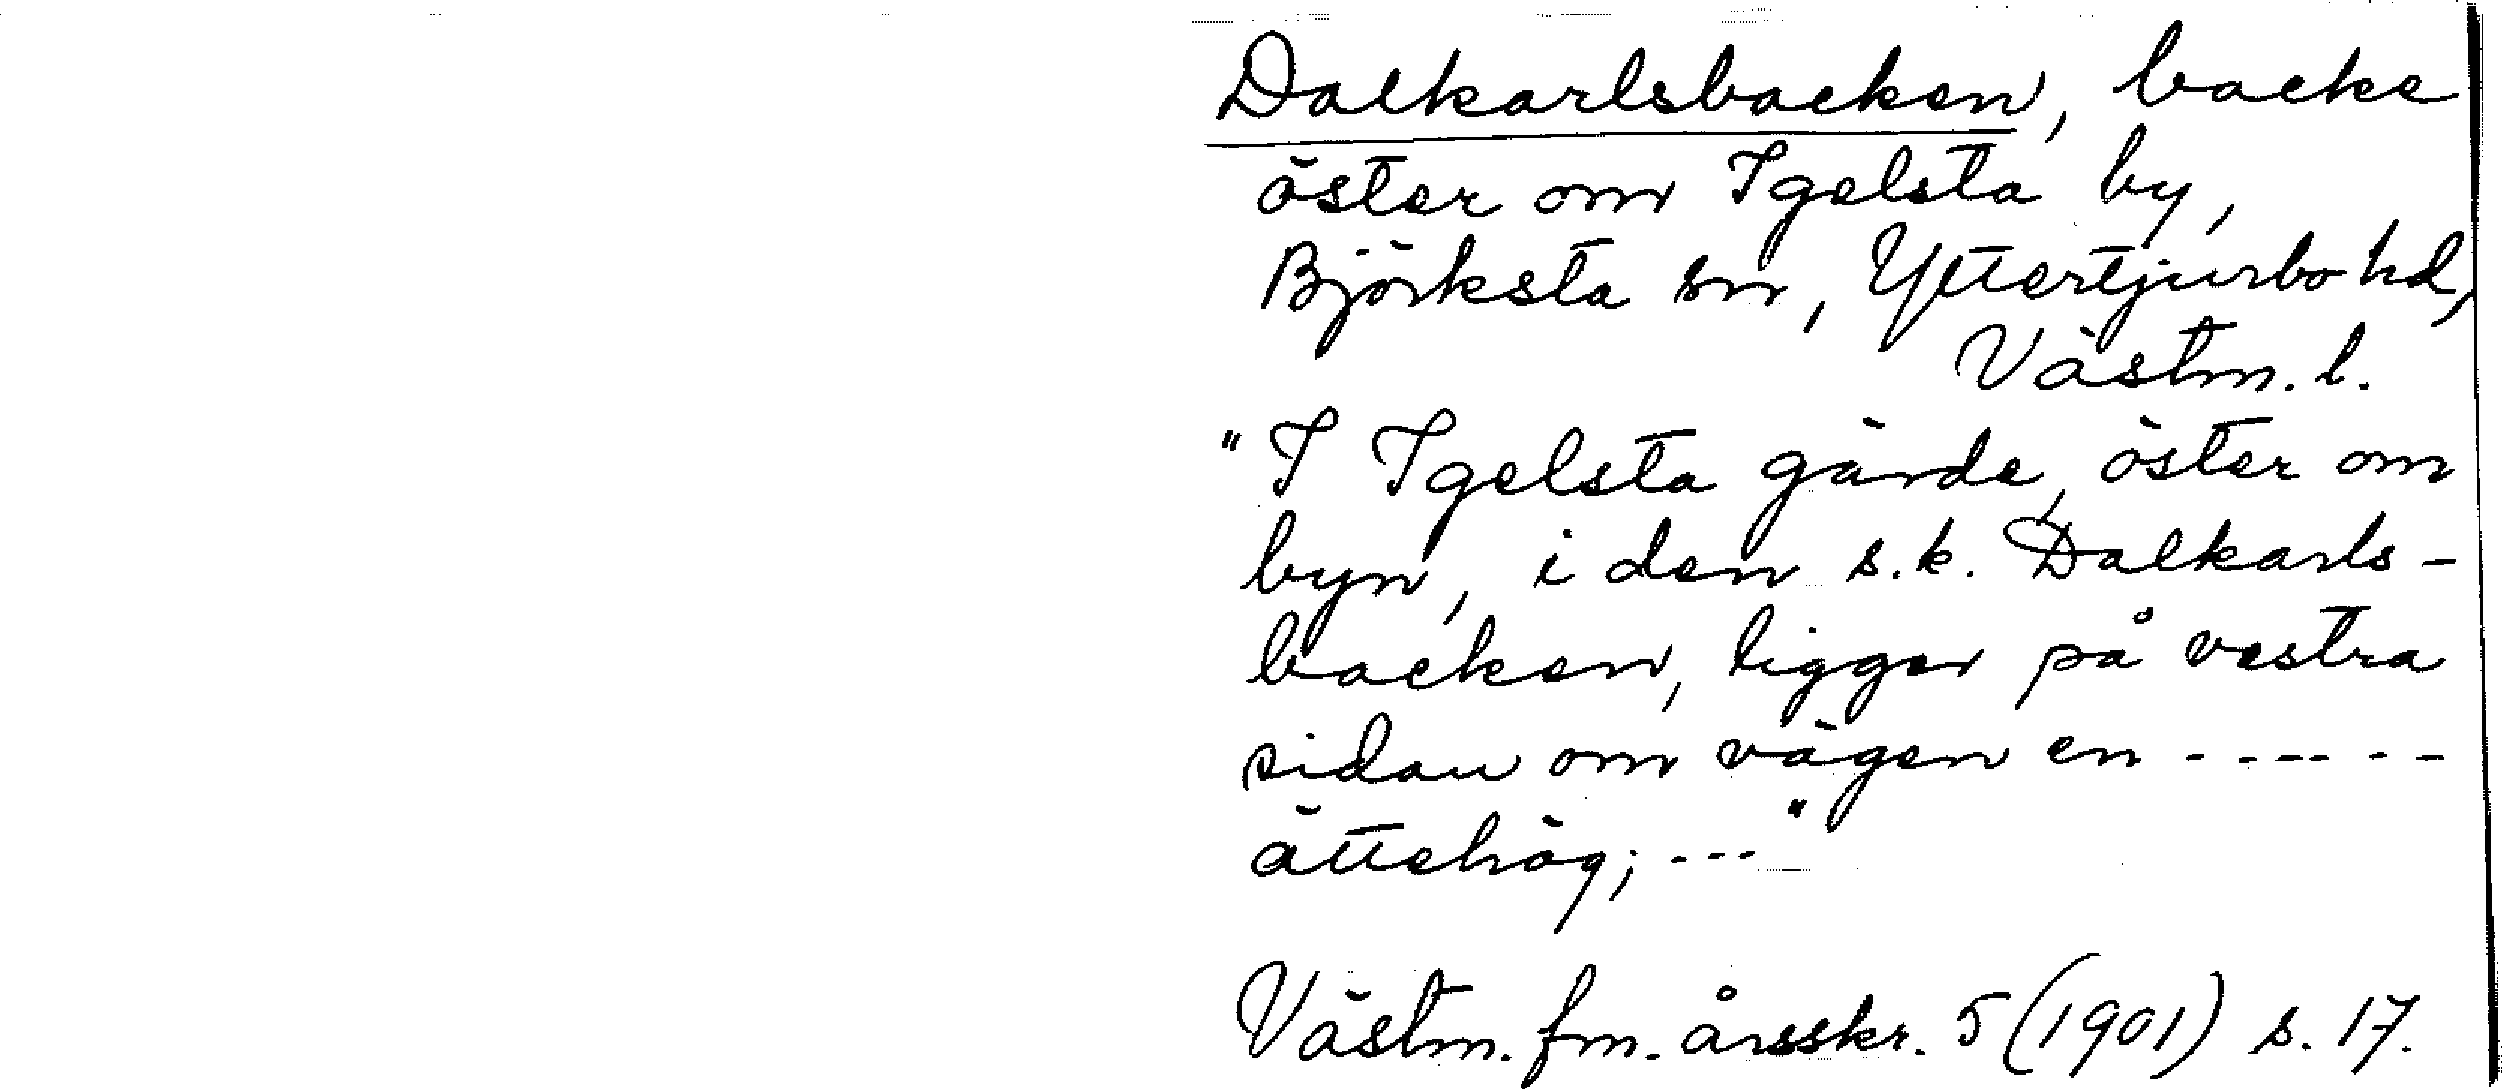 Dalkarlsbacken, backe
öster om Igelsta by,
Björksta sn, Yttertjurbo hd,
Västm. l.
"I Igelsta gärde, öster om
byn, i den s.k. Dalkarls-
backen, ligger på vestra
sidan om vägen en ------
ättehög; ---"
Västm. fm. årsskr. 5 (1901) s. 17.